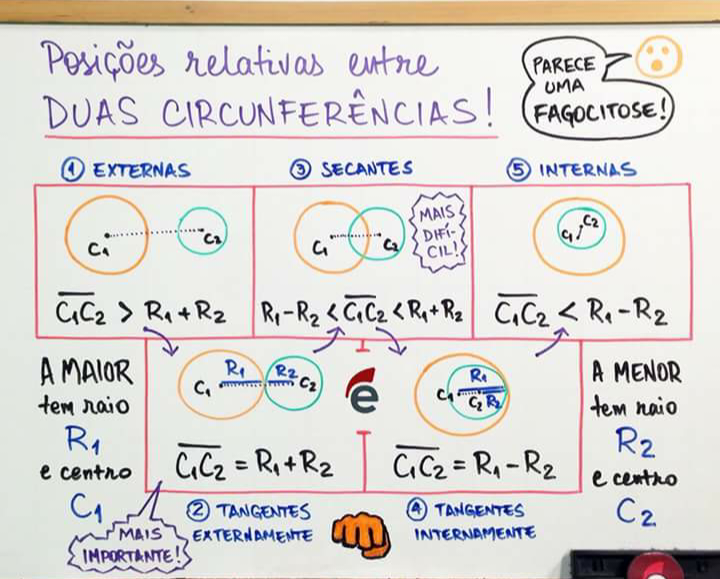 Posições relativas entre
DUAS CIRCUNFERÊNCIAS!
PARECE
UMA
FAGOCITOSE!
① EXTERNAS
③ SECANTES
⑤ INTERNAS
C₁
C₂
C₁
C₂
MAIS
DIFÍ-
CIL!
C₁
C₂
C₁C₂ > R₁ + R₂
R₁ - R₂ < C₁C₂ < R₁ + R₂
C₁C₂ < R₁ - R₂
A MAIOR
tem raio
R₁
e centro
C₁
C₁
R₁
R₂
C₂
e
C₁
R₁
C₂
R₂
C₁C₂ = R₁ + R₂
C₁C₂ = R₁ - R₂
A MENOR
tem raio
R₂
e centro
C₂
MAIS
IMPORTANTE!
② TANGENTES
EXTERNAMENTE
④ TANGENTES
INTERNAMENTE